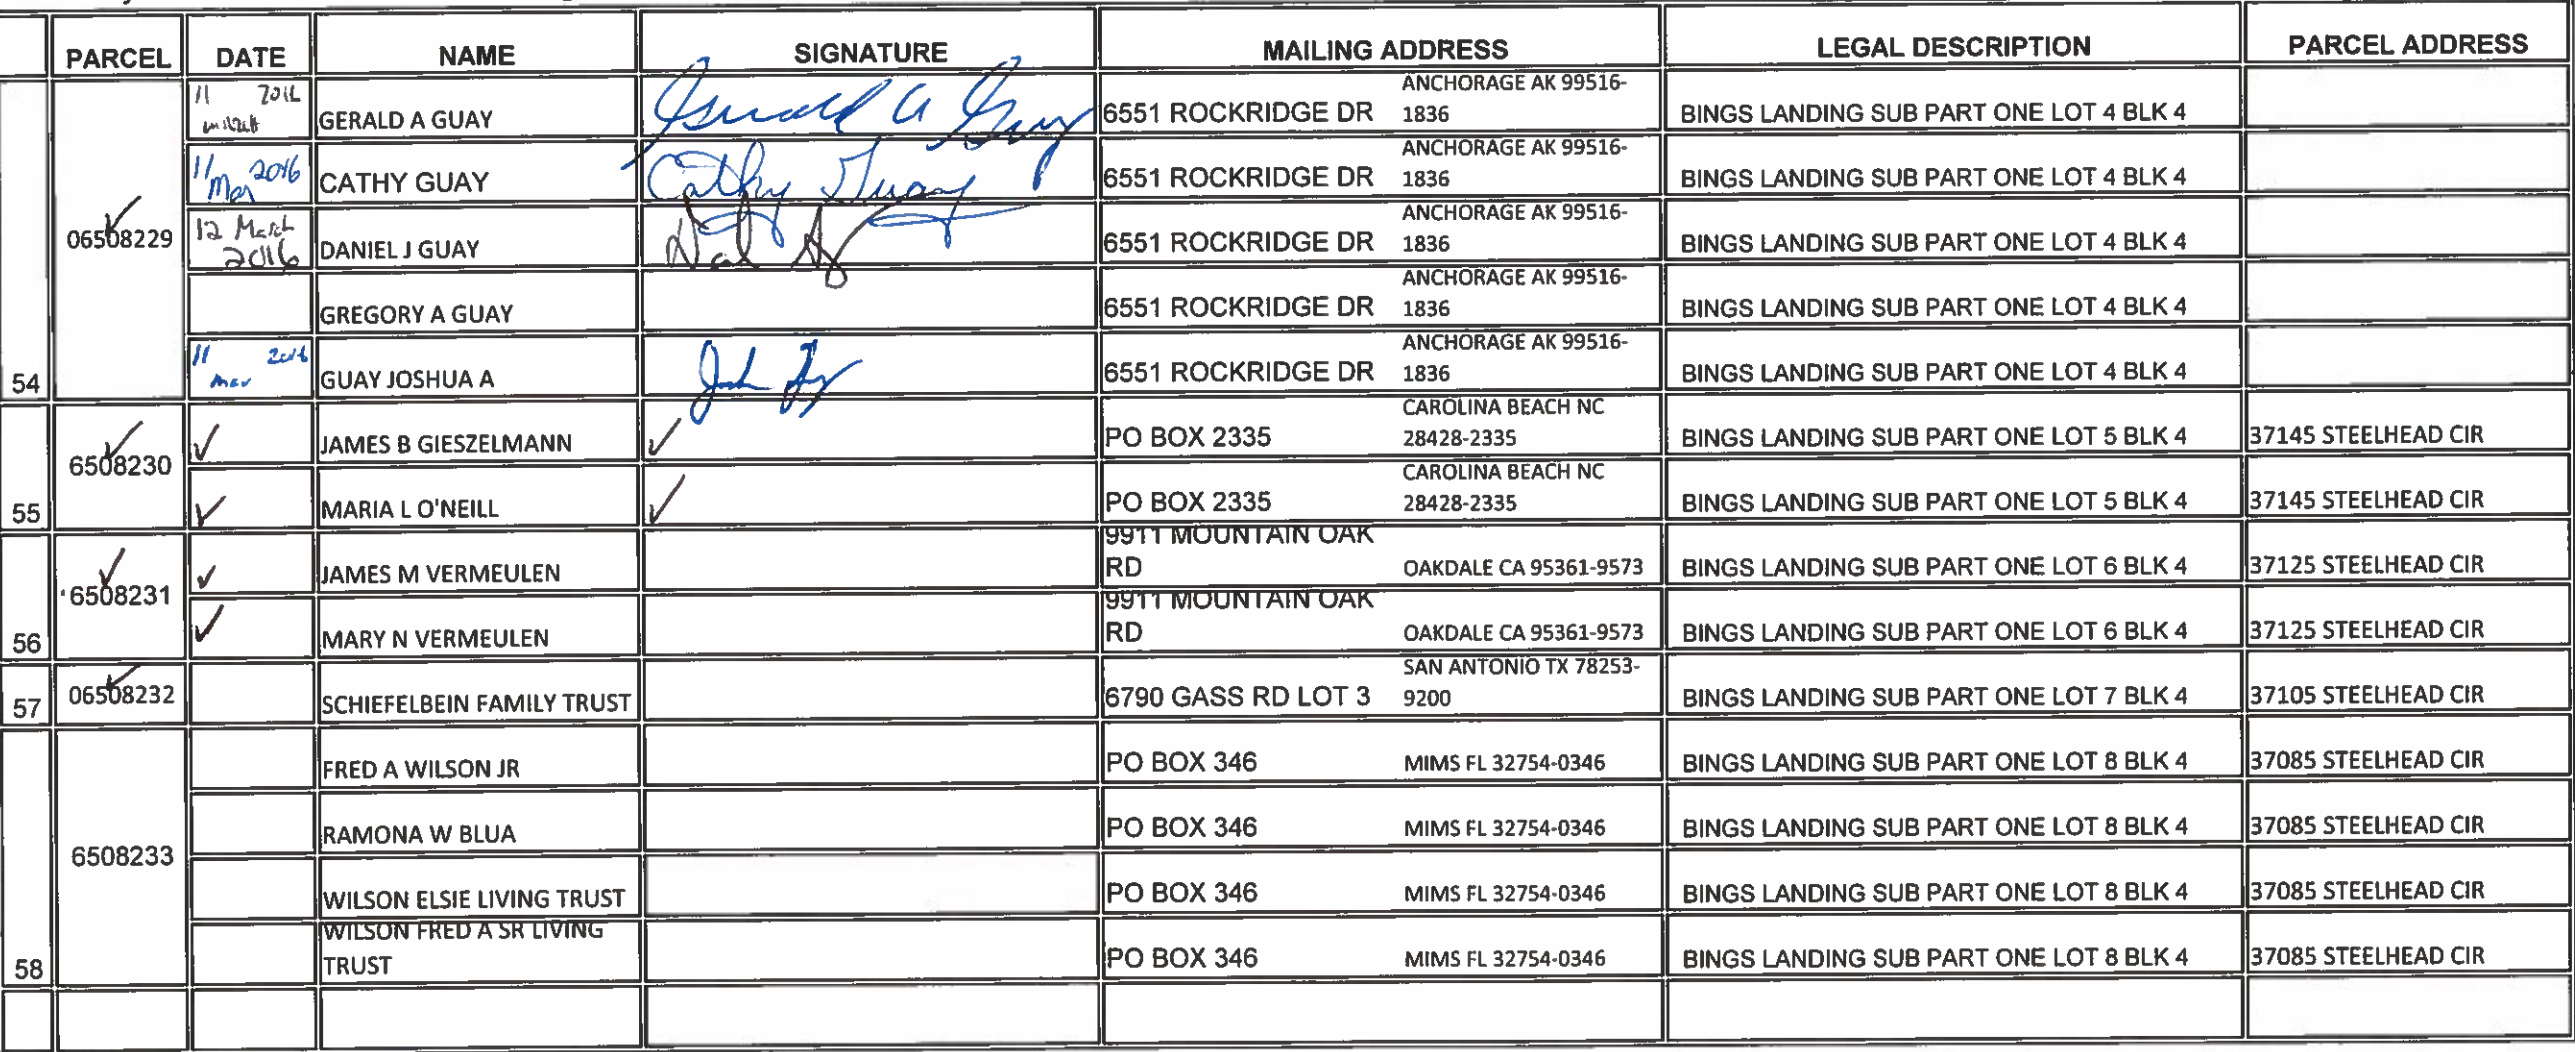 PARCEL DATE NAME SIGNATURE MAILING ADDRESS LEGAL DESCRIPTION PARCEL ADDRESS
54 06508229 11 2016 GERALD A GUAY Gerald A Guay 6551 ROCKRIDGE DR ANCHORAGE AK 99516-1836 BINGS LANDING SUB PART ONE LOT 4 BLK 4
11 Mar 2016 CATHY GUAY Cathy Guay 6551 ROCKRIDGE DR ANCHORAGE AK 99516-1836 BINGS LANDING SUB PART ONE LOT 4 BLK 4
12 March 2016 DANIEL J GUAY 6551 ROCKRIDGE DR ANCHORAGE AK 99516-1836 BINGS LANDING SUB PART ONE LOT 4 BLK 4
GREGORY A GUAY 6551 ROCKRIDGE DR ANCHORAGE AK 99516-1836 BINGS LANDING SUB PART ONE LOT 4 BLK 4
11 Mar 2016 GUAY JOSHUA A 6551 ROCKRIDGE DR ANCHORAGE AK 99516-1836 BINGS LANDING SUB PART ONE LOT 4 BLK 4
55 6508230 ✓ ✓ JAMES B GIESZELMANN ✓ PO BOX 2335 CAROLINA BEACH NC 28428-2335 BINGS LANDING SUB PART ONE LOT 5 BLK 4 37145 STEELHEAD CIR
✓ MARIA L O'NEILL ✓ PO BOX 2335 CAROLINA BEACH NC 28428-2335 BINGS LANDING SUB PART ONE LOT 5 BLK 4 37145 STEELHEAD CIR
56 6508231 ✓ ✓ JAMES M VERMEULEN 9911 MOUNTAIN OAK RD OAKDALE CA 95361-9573 BINGS LANDING SUB PART ONE LOT 6 BLK 4 37125 STEELHEAD CIR
✓ MARY N VERMEULEN 9911 MOUNTAIN OAK RD OAKDALE CA 95361-9573 BINGS LANDING SUB PART ONE LOT 6 BLK 4 37125 STEELHEAD CIR
57 06508232 ✓ SCHIEFELBEIN FAMILY TRUST 6790 GASS RD LOT 3 SAN ANTONIO TX 78253-9200 BINGS LANDING SUB PART ONE LOT 7 BLK 4 37105 STEELHEAD CIR
58 6508233 FRED A WILSON JR PO BOX 346 MIMS FL 32754-0346 BINGS LANDING SUB PART ONE LOT 8 BLK 4 37085 STEELHEAD CIR
RAMONA W BLUA PO BOX 346 MIMS FL 32754-0346 BINGS LANDING SUB PART ONE LOT 8 BLK 4 37085 STEELHEAD CIR
WILSON ELSIE LIVING TRUST PO BOX 346 MIMS FL 32754-0346 BINGS LANDING SUB PART ONE LOT 8 BLK 4 37085 STEELHEAD CIR
WILSON FRED A SR LIVING TRUST PO BOX 346 MIMS FL 32754-0346 BINGS LANDING SUB PART ONE LOT 8 BLK 4 37085 STEELHEAD CIR